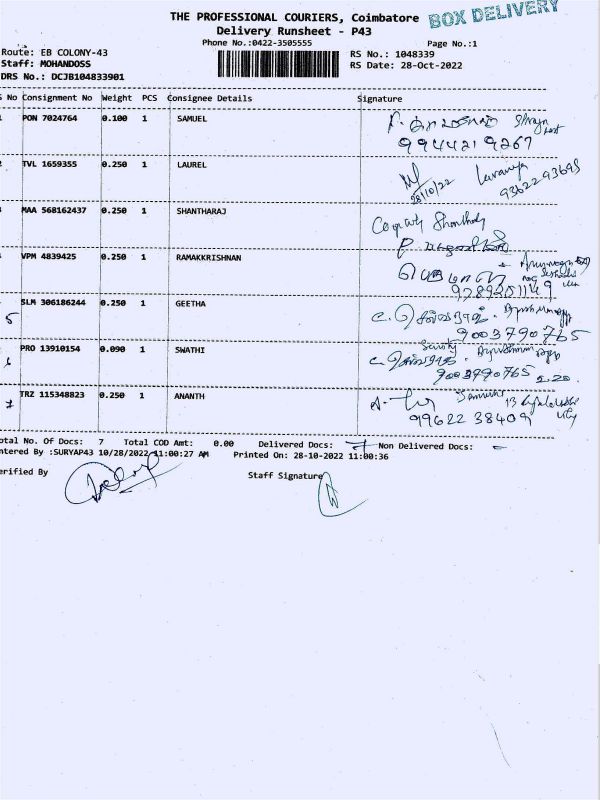 THE PROFESSIONAL COURIERS, Coimbatore
BOX DELIVERY
Delivery Runsheet - P43
Phone No.:0422-3505555
Page No.:1
Route: EB COLONY-43
RS No.: 1048339
Staff: MOHANDOSS
RS Date: 28-Oct-2022
DRS No.: DCJB104833901
S No Consignment No Weight PCS Consignee Details Signature
PON 7024764 0.100 1 SAMUEL
9944219267
TVL 1659355 0.250 1 LAUREL
28/10/22
Lavanya
9362293695
MAA 568162437 0.250 1 SHANTHARAJ
VPM 4839425 0.250 1 RAMAKKRISHNAN
SLM 306186244 0.250 1 GEETHA
5
உ. செல்வராஜ்.
9003790765
PRO 13910154 0.090 1 SWATHI
6
9003790765 5.20.
TRZ 115348823 0.250 1 ANANTH
7
99622 38409
Total No. Of Docs: 7 Total COD Amt: 0.00 Delivered Docs: 7 Non Delivered Docs: -
Entered By :SURYAP43 10/28/2022 11:00:27 AM Printed On: 28-10-2022 11:00:36
Verified By
Staff Signature